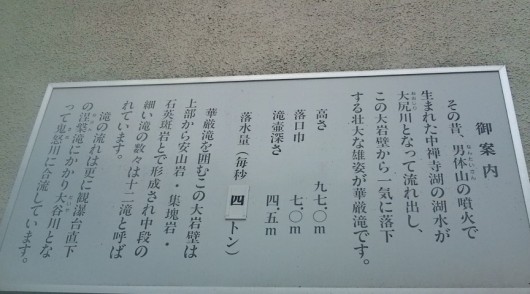 御案内
その昔、男体山の噴火で
生まれた中禅寺湖の湖水が
大尻川となって流れ出し、
この大岩壁から一気に落下
する壮大な雄姿が華厳滝です。
高さ 九七.〇m
落口巾 七.〇m
滝壺深さ 四.五m
落水量(毎秒 四 トン)
華厳滝を囲むこの大岩壁は
上部から安山岩・集塊岩・
石英斑岩とで形成され中段の
細い滝の数々は十二滝と呼ば
れています。
滝の流れは更に観瀑台直下
の涅槃滝にかかり大谷川とな
って鬼怒川に合流しています。